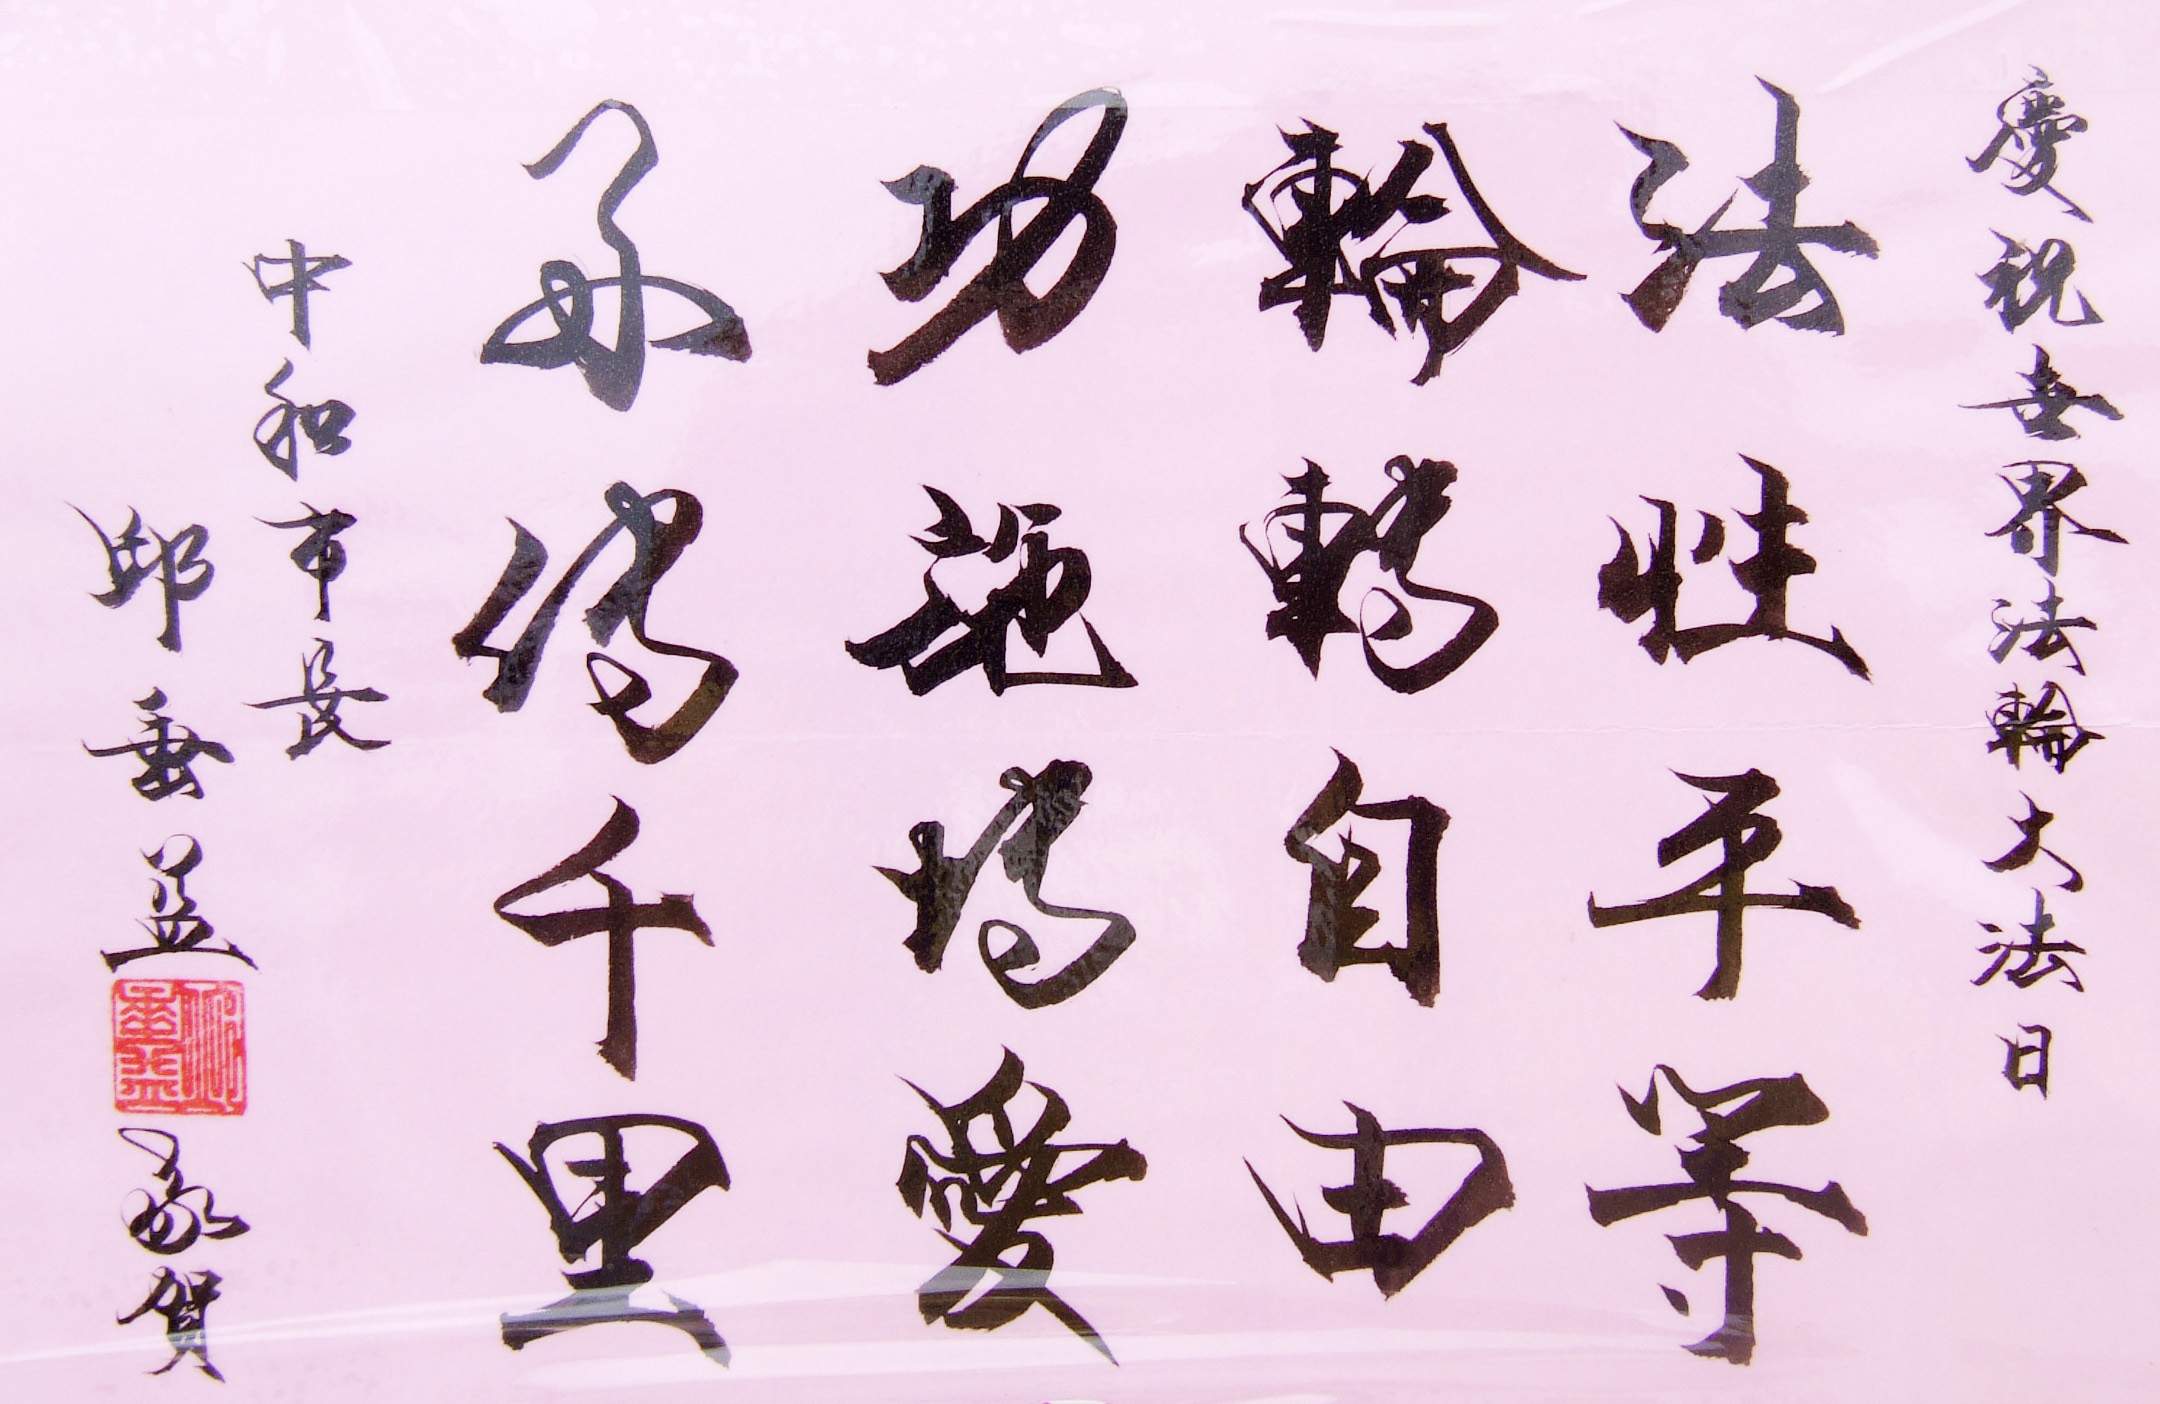 慶祝世界法輪大法日
法性平等
輪轉自由
功施博愛
好傳千里
中和市長
邱垂益
賀